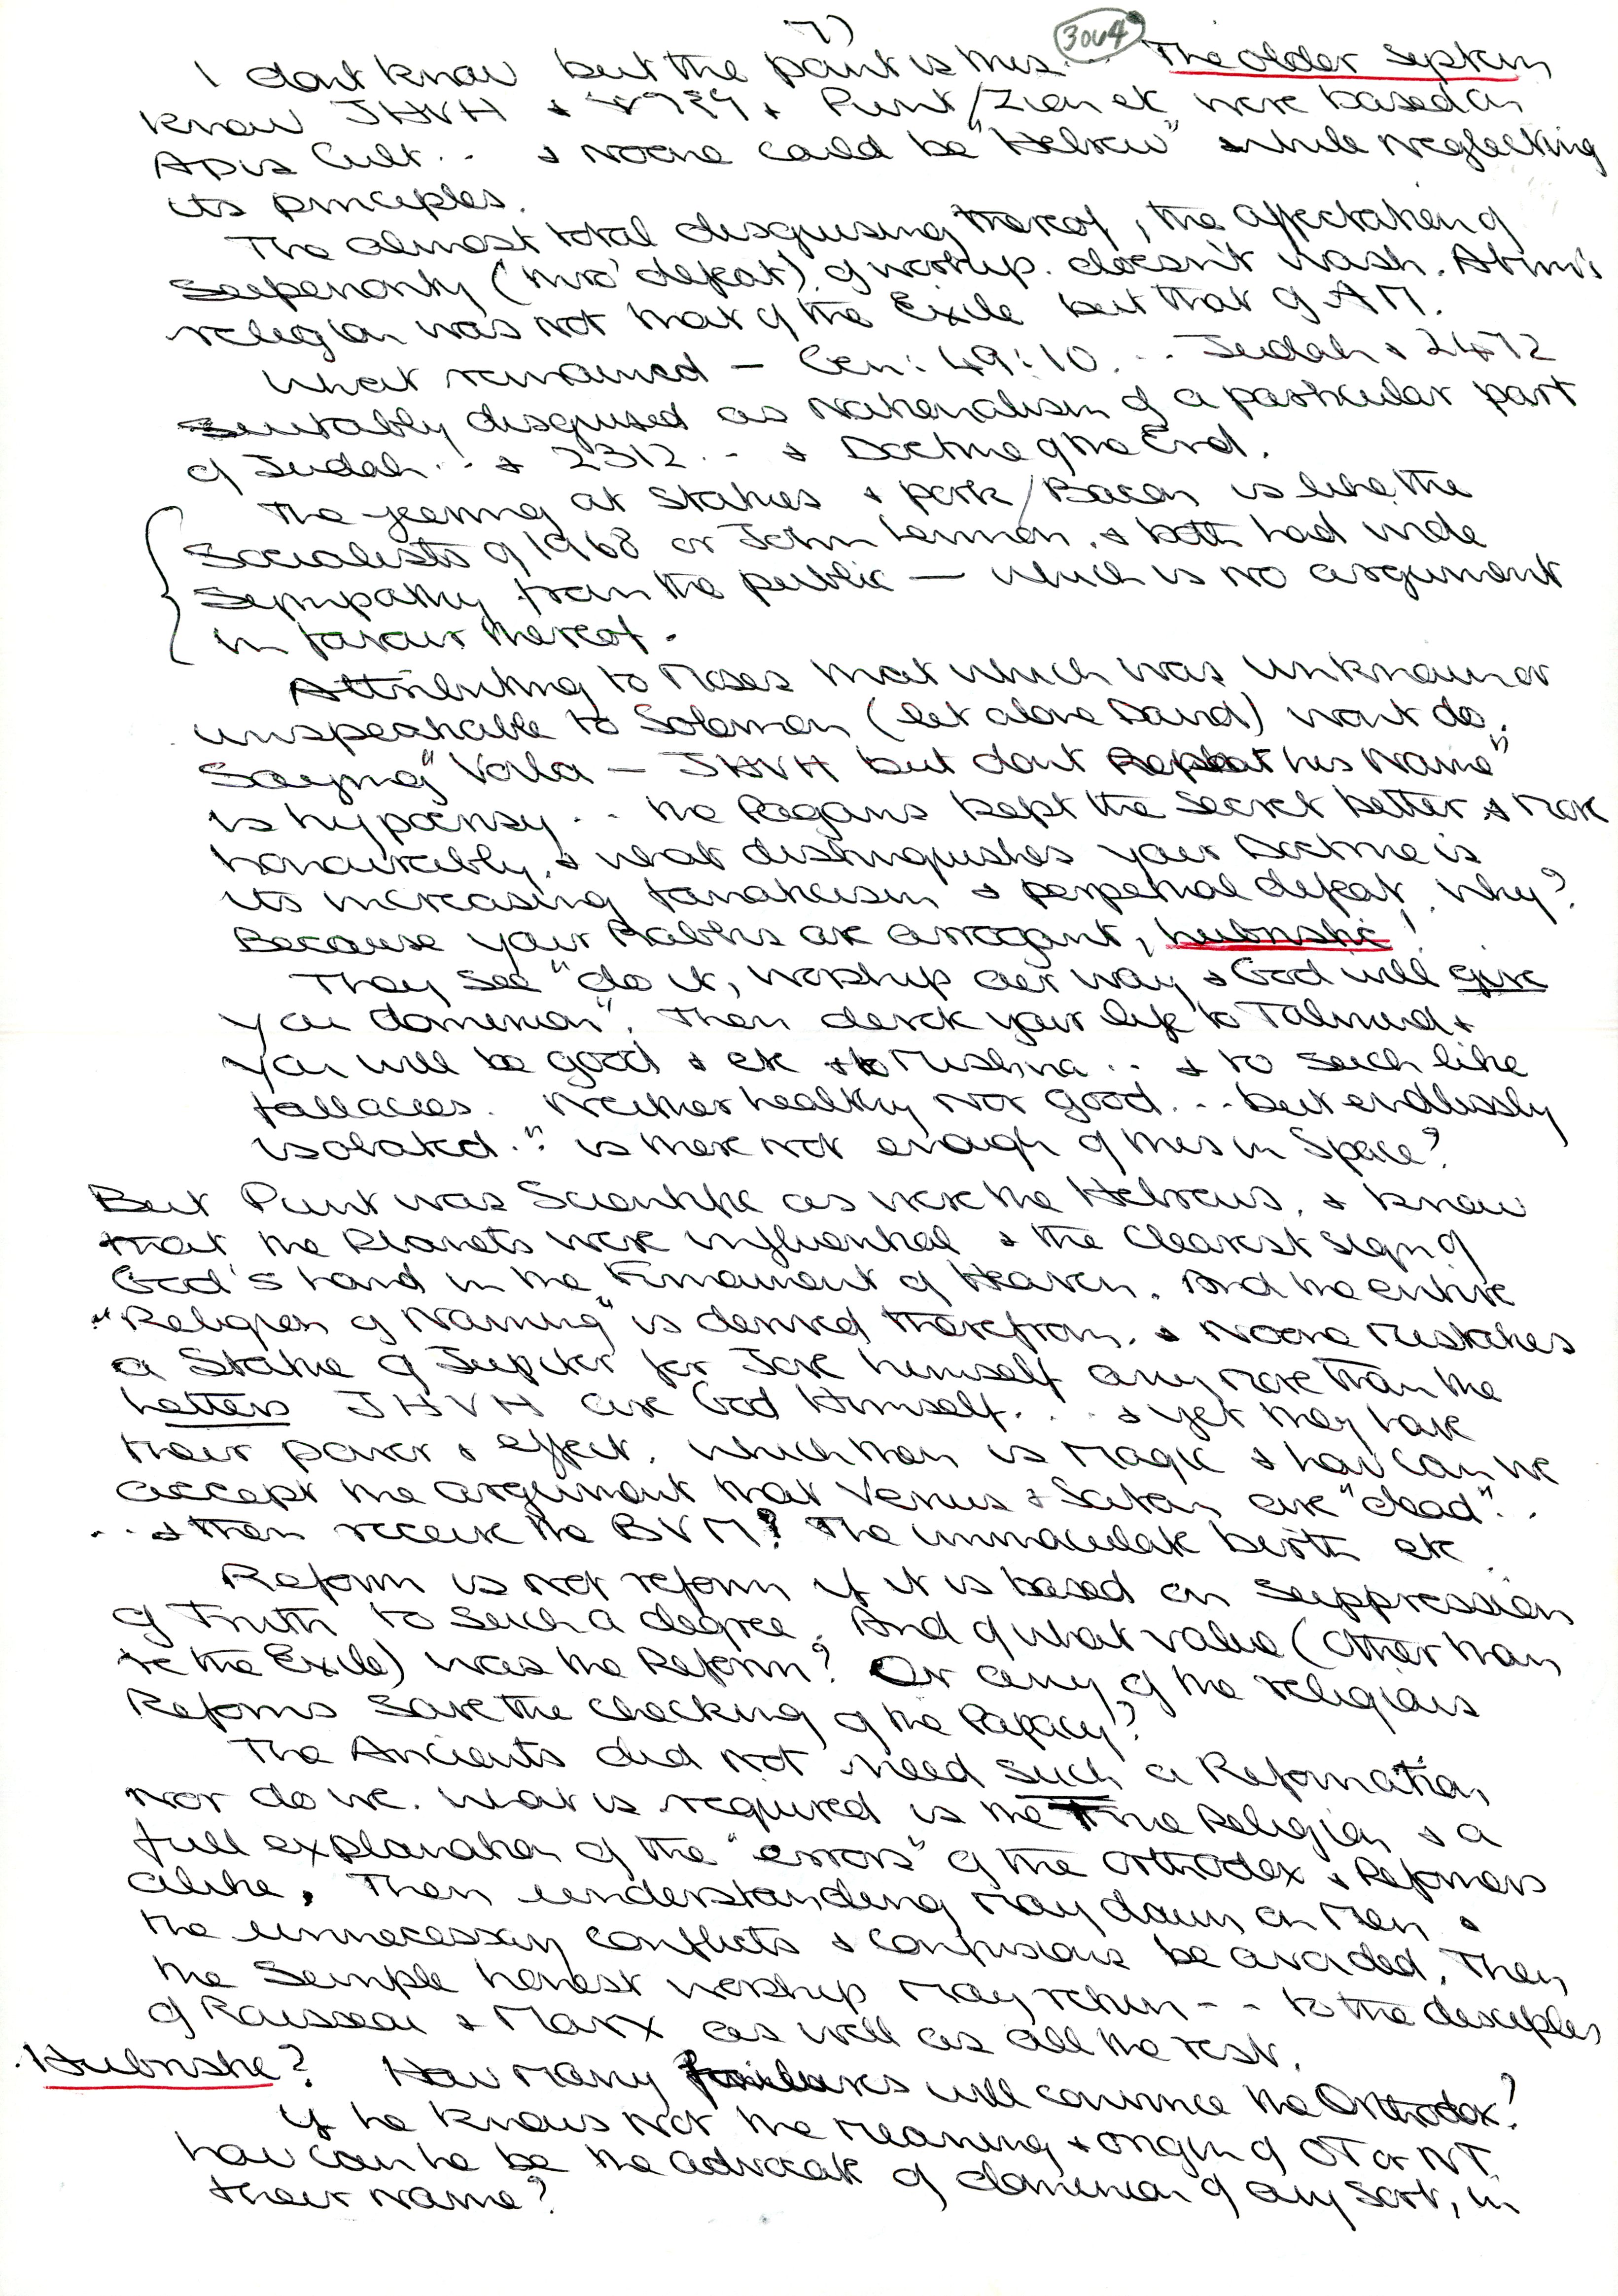 7)
3064
I dont know but the point is this. The older system
knew JHVH + + Punt/Zion etc were based on
Apis Cult .. + Noone could be "Hebrew" while neglecting
its principles.
The almost total disguising thereof, the affectation of
superiority (thro' defeat) of worship. doesn't wash. Atum's
religion was not that of the Exile but that of AM.
What remained — Gen: 49:10. .. Judah + 2472
suitably disguised as Nationalism of a particular part
of Judah .. + 2312 .. + Doctrine of the End.
The jeering at Statues + pork/Bacon is like the
Socialists of 1968 or John Lennon. + both had wide
sympathy from the public — which is no argument
in favour thereof.
Attributing to Moses that which was unknown or
unspeakable to Solomon (let alone David) wont do.
Saying "Voila — JHVH but dont Repeat his Name"
is hypocrisy .. the Pagans kept the secret better + more
honourably, + what distinguishes your Doctrine is
its increasing fanaticism + perpetual defeat. Why?
Because your Rabbis are arrogant, hubristic!
They see "do it, worship our way + God will give
you dominion". Then devote your life to Talmud +
you will be good + etc + to Mishna .. + to such like
fallacies. Neither healthy nor good ... but endlessly
isolated." is there not enough of this in Space?
But Punt was Scientific as were the Hebrews, + knew
that the Planets were influential + the clearest sign of
God's hand in the Firmament of Heaven. And the entire
"Religion of Naming" is derived therefrom. + Noone mistakes
a Statue of Jupiter for Jove himself any more than the
Letters JHVH are God Himself. .. + yet they have
their power + effect. Which then is Magic + how can we
accept the argument that Venus + Satan are "dead" ..
.. + then receive the BVM? The immaculate birth etc.
Reform is not reform if it is based on suppression
of Truth to such a degree. And of what value (other than
re the Exile) was the Reform? Or any of the religious
Reforms save the checking of the Papacy?
The Ancients did not need such a Reformation
nor do we. What is required is the True Religion + a
full explanation of the "errors" of the Orthodox + Reformers
alike. Then understanding may dawn on Men +
the unnecessary conflicts + confusions be avoided. Then
the simple honest worship may return - - to the disciples
of Rousseau + Marx as well as all the rest.
Hubristic? How many failures will convince the Orthodox?
If he knows not the meaning + origin of OT or NT
how can he be the advocate of dominion of any sort, in
their name?